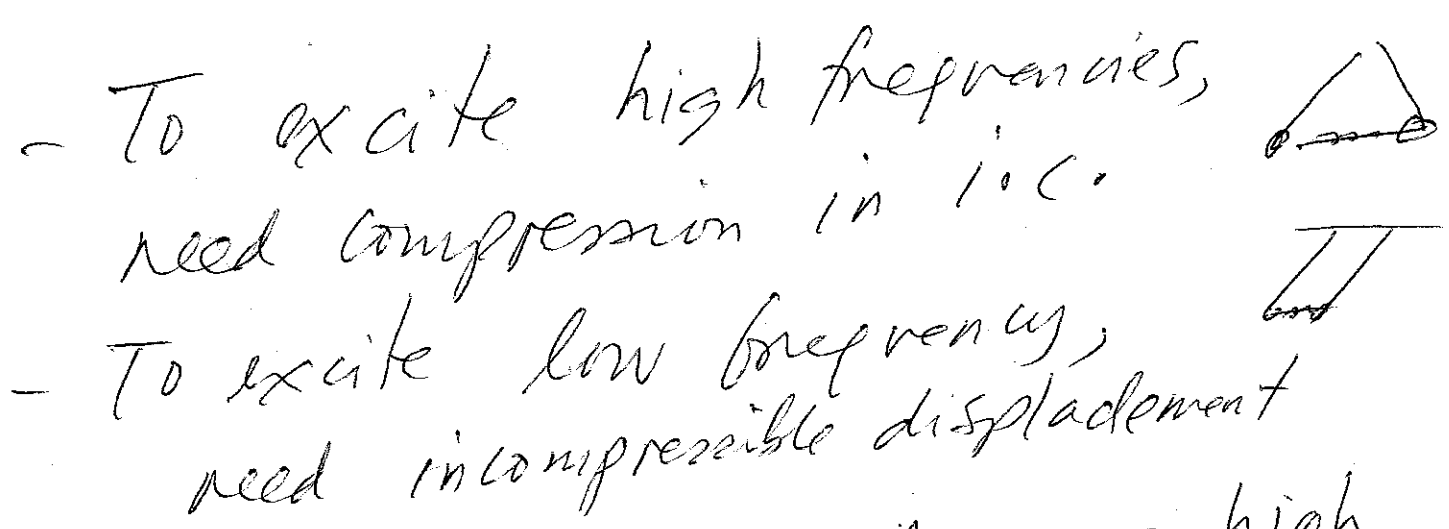 - To excite high frequencies,
need compression in i.c.
- To excite low frequency,
need incompressible displacement
high